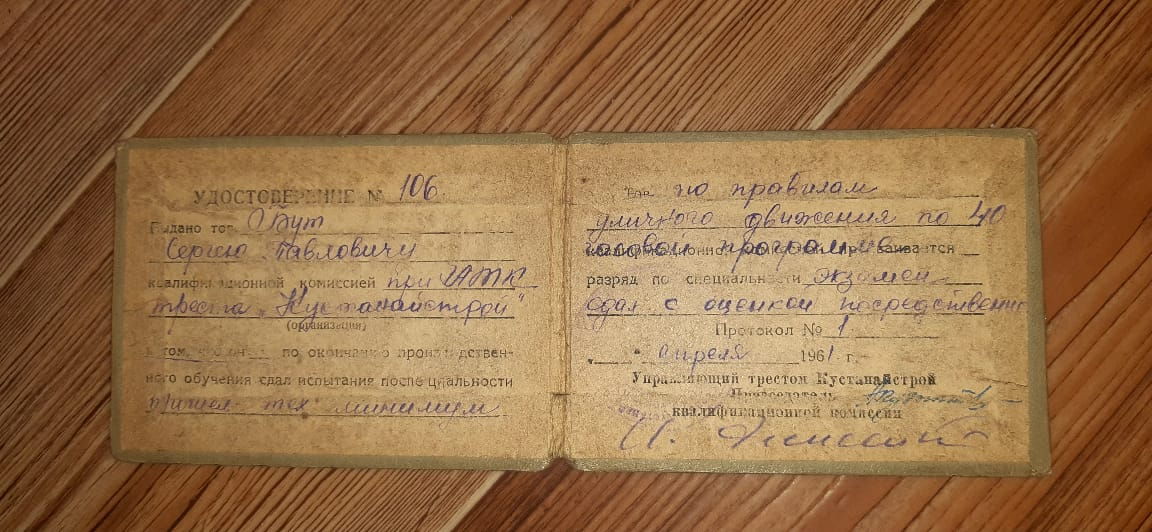 УДОСТОВЕРЕНИЕ № 106
Выдано тов. Бут
Сергею Павловичу
квалификационной комиссией при УАТК
треста „Кустанайстрой"
(организация)
в том, что он по окончанию производствен-
ного обучения сдал испытания по специальности
прошел тех. минимум
по правилам
уличного движения по 40
часовой программе
разряд по специальности экзамен
сдал с оценкой посредственно
Протокол № 1
„ " апреля 1961 г.
Управляющий трестом Кустанайстрой
Председатель
квалификационной комиссии